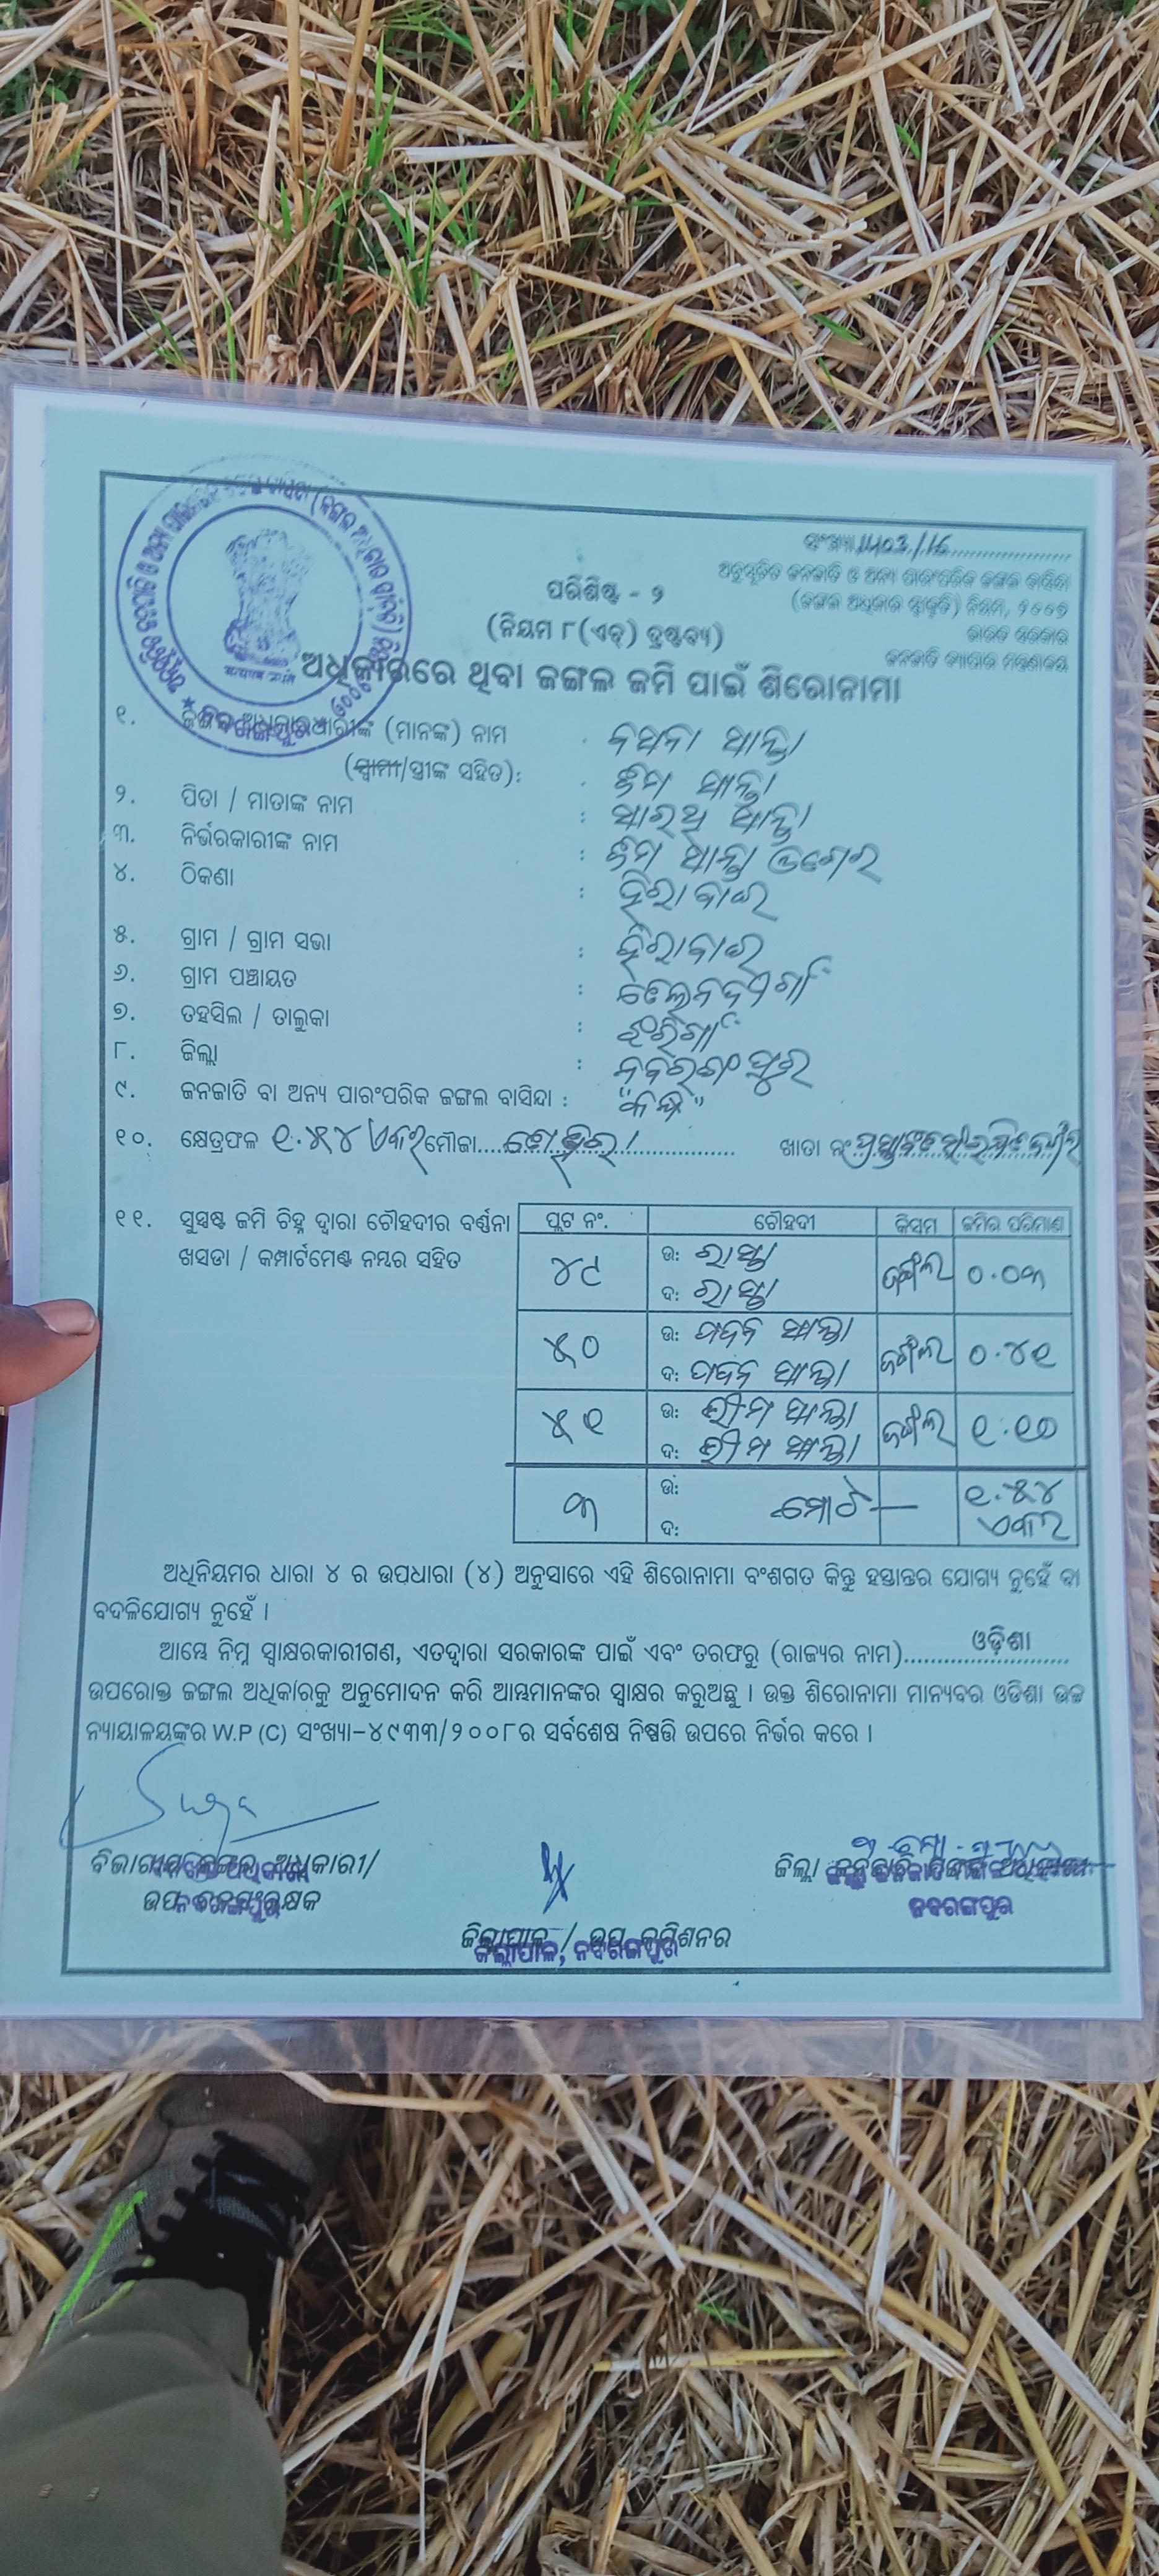 ସଂଖ୍ୟା 1403/16
ଅନୁସୂଚିତ ଜନଜାତି ଓ ଅନ୍ୟ ପାରଂପରିକ ଜଙ୍ଗଲ ବାସିନ୍ଦା
(ଜଙ୍ଗଲ ଅଧିକାର ସ୍ୱୀକୃତି) ନିୟମ, ୨୦୦୭
ଭାରତ ସରକାର
ଜନଜାତି ବ୍ୟାପାର ମନ୍ତ୍ରଣାଳୟ
ପରିଶିଷ୍ଟ - ୨
(ନିୟମ ୮(ଏଚ୍) ଦ୍ରଷ୍ଟବ୍ୟ)
ଅଧିକାରରେ ଥିବା ଜଙ୍ଗଲ ଜମି ପାଇଁ ଶିରୋନାମା
୧. ଜଙ୍ଗଲ ଅଧିକାରଧାରୀଙ୍କ (ମାନଙ୍କ) ନାମ ସାନ୍ତା
(ସ୍ୱାମୀ/ସ୍ତ୍ରୀଙ୍କ ସହିତ): ସାନ୍ତା
୨. ପିତା / ମାତାଙ୍କ ନାମ : ସାନ୍ତା
୩. ନିର୍ଭରକାରୀଙ୍କ ନାମ : ସାନ୍ତା
୪. ଠିକଣା : ହିରାବାଇ
୫. ଗ୍ରାମ / ଗ୍ରାମ ସଭା : ହିରାବାଇ
୬. ଗ୍ରାମ ପଞ୍ଚାୟତ :
୭. ତହସିଲ / ତାଲୁକା : ଝରିଗାଁ
୮. ଜିଲ୍ଲା : ନବରଙ୍ଗପୁର
୯. ଜନଜାତି ବା ଅନ୍ୟ ପାରଂପରିକ ଜଙ୍ଗଲ ବାସିନ୍ଦା : "କନ୍ଧ"
୧୦. କ୍ଷେତ୍ରଫଳ ୧.୫୪ ଏକର ମୌଜା ଖାତା ନଂ
୧୧. ସୁସ୍ପଷ୍ଟ ଜମି ଚିହ୍ନ ଦ୍ୱାରା ଚୌହଦୀର ବର୍ଣ୍ଣନା
ଖସଡା / କମ୍ପାର୍ଟମେଣ୍ଟ ନମ୍ବର ସହିତ
ପ୍ଲଟ ନଂ. ଚୌହଦୀ କିସମ ଜମିର ପରିମାଣ
୪୯ ଉ: ରାସ୍ତା ଜଙ୍ଗଲ ୦.୦୩
ଦ: ରାସ୍ତା
୫୦ ଉ: ସାନ୍ତା ଜଙ୍ଗଲ ୦.୪୧
ଦ: ସାନ୍ତା
୫୧ ଉ: ଭୀମ ସାନ୍ତା ଜଙ୍ଗଲ ୧.୧୦
ଦ: ଭୀମ ସାନ୍ତା
୩ ଉ: ମୋଟ — ୧.୫୪
ଦ: ଏକର
ଅଧିନିୟମର ଧାରା ୪ ର ଉପଧାରା (୪) ଅନୁସାରେ ଏହି ଶିରୋନାମା ବଂଶଗତ କିନ୍ତୁ ହସ୍ତାନ୍ତର ଯୋଗ୍ୟ ନୁହେଁ ବା
ବଦଳିଯୋଗ୍ୟ ନୁହେଁ ।
ଆମ୍ଭେ ନିମ୍ନ ସ୍ୱାକ୍ଷରକାରୀଗଣ, ଏତଦ୍ୱାରା ସରକାରଙ୍କ ପାଇଁ ଏବଂ ତରଫରୁ (ରାଜ୍ୟର ନାମ) ଓଡ଼ିଶା
ଉପରୋକ୍ତ ଜଙ୍ଗଲ ଅଧିକାରକୁ ଅନୁମୋଦନ କରି ଆମ୍ଭମାନଙ୍କର ସ୍ୱାକ୍ଷର କରୁଅଛୁ । ଉକ୍ତ ଶିରୋନାମା ମାନ୍ୟବର ଓଡିଶା ଉଚ୍ଚ
ନ୍ୟାୟାଳୟଙ୍କର W.P (C) ସଂଖ୍ୟା-୪୯୩୩/୨୦୦୮ର ସର୍ବଶେଷ ନିଷ୍ପତ୍ତି ଉପରେ ନିର୍ଭର କରେ ।
ବିଭାଗୀୟ ଜଙ୍ଗଲ ଅଧିକାରୀ/
ଉପ ବନସଂରକ୍ଷକ
ନବରଙ୍ଗପୁର
ଜିଲ୍ଲାପାଳ / ଉପ କମିଶନର
ଜିଲ୍ଲାପାଳ, ନବରଙ୍ଗପୁର
ଜିଲ୍ଲା
ନବରଙ୍ଗପୁର